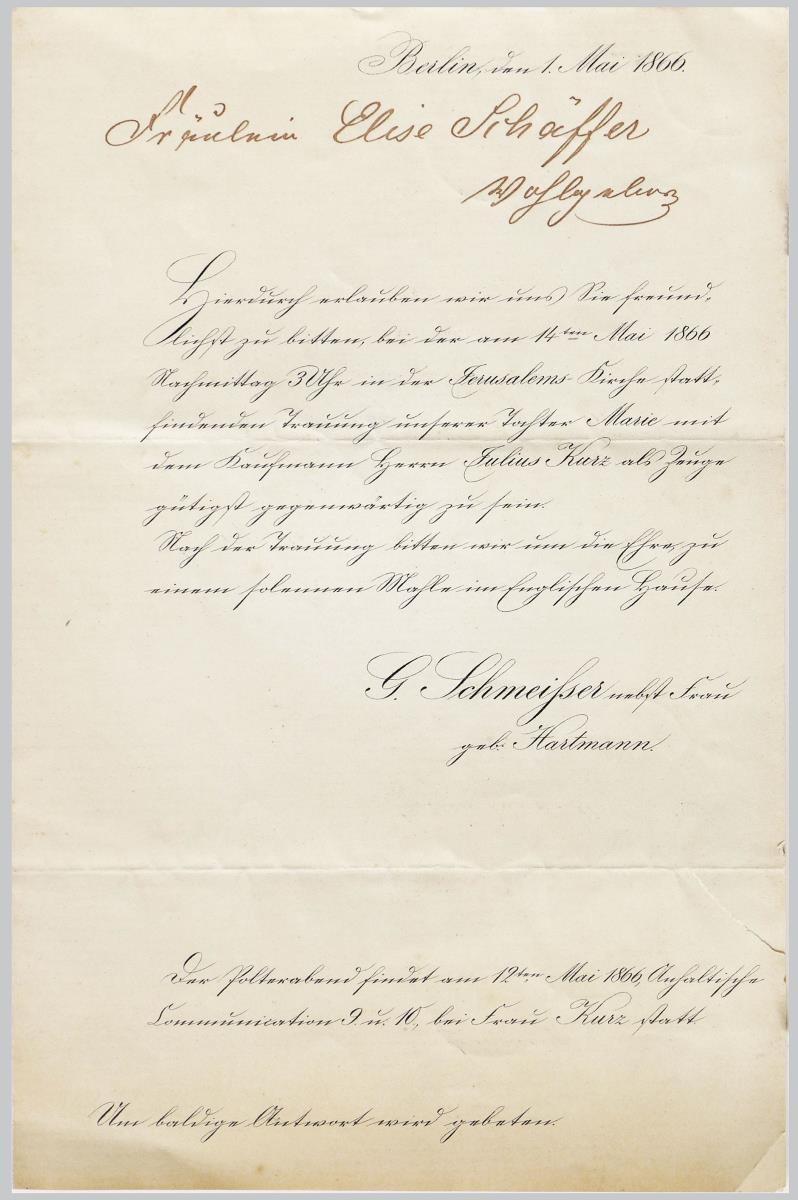 Berlin, den 1. Mai 1866.
Fräulein Elise Schäffer
Wohlgeboren
Hierdurch erlauben wir uns Sie freund-
lichst zu bitten, bei der am 14ten Mai 1866
Nachmittag 3 Uhr in der Jerusalems-Kirche statt-
findenden Trauung unserer Tochter Marie mit
dem Kaufmann Herrn Julius Kurz als Zeuge
gütigst gegenwärtig zu sein.
Nach der Trauung bitten wir um die Ehre, zu
einem solennen Mahle im Englischen Hause.
G. Schmeisser nebst Frau
geb: Hartmann.
Der Polterabend findet am 12ten Mai 1866, Anhaltische
Communication 9. u. 10., bei Frau Kurz statt.
Um baldige Antwort wird gebeten.